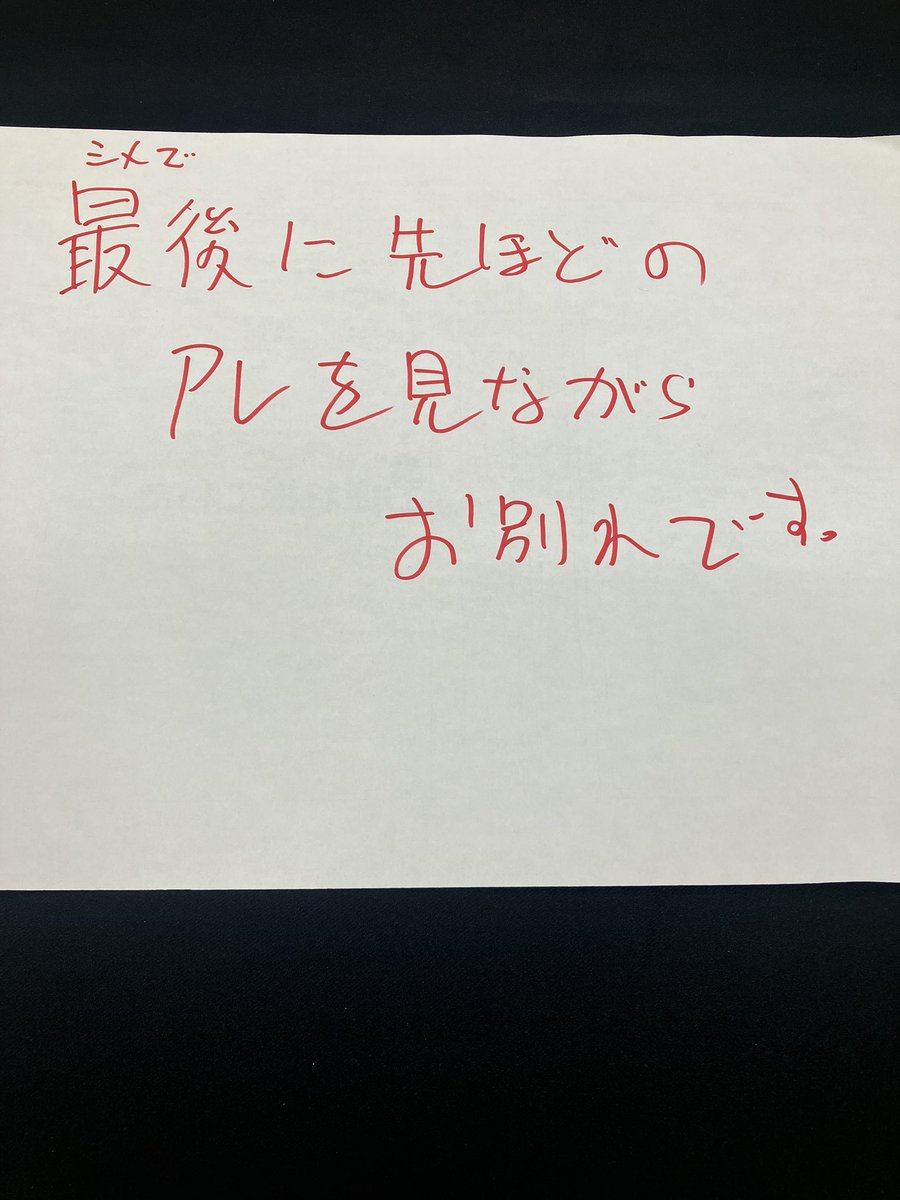 シメで
最後に先ほどの
アレを見ながら
お別れです。